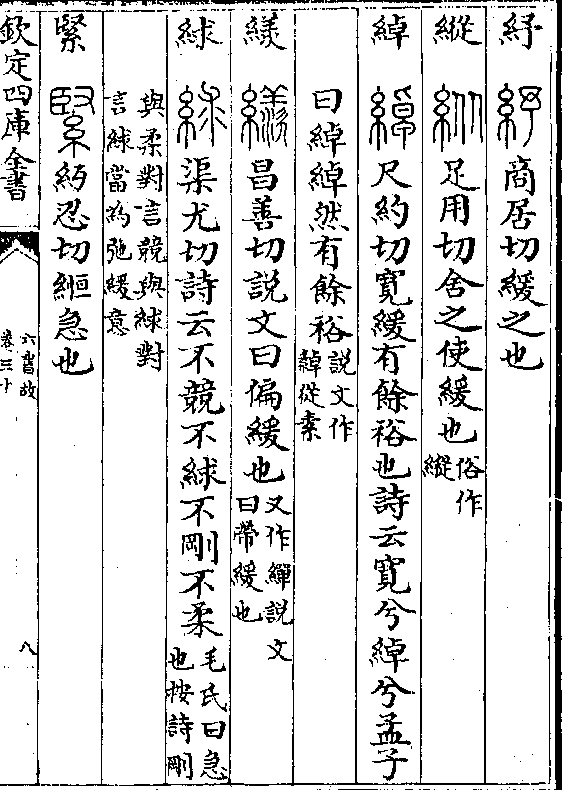 紓 商居切緩之也
縱 足用切舍之使緩也俗作縱
綽 尺約切寛緩有餘裕也詩云寛兮綽兮孟子
曰綽綽然有餘裕說文作繛從素
繎 昌善切說文曰偏緩也又作繟說文曰帶緩也
絿 渠尤切詩云不競不絿不剛不柔毛氏曰急也按詩剛
與柔對言競與絿對言絿當為弛緩意
緊 糾忍切縆急也
欽定四庫全書
六書故
卷三十
八